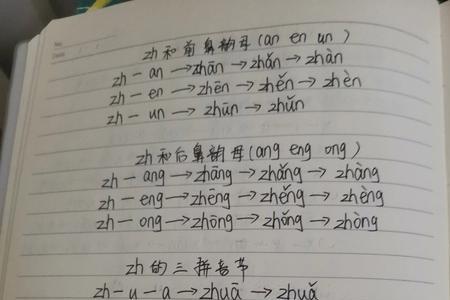 zh和前鼻韵母(an en un)
zh－an→zhān→zhǎn→zhàn
zh－en→zhēn→zhěn→zhèn
zh－un→zhūn→zhǔn
zh和后鼻韵母(ang eng ong)
zh－ang→zhāng→zhǎng→zhàng
zh－eng→zhēng→zhěng→zhèng
zh－ong→zhōng→zhǒng→zhòng
zh的三拼音节
zh-u-a→zhuā→zhuǎ